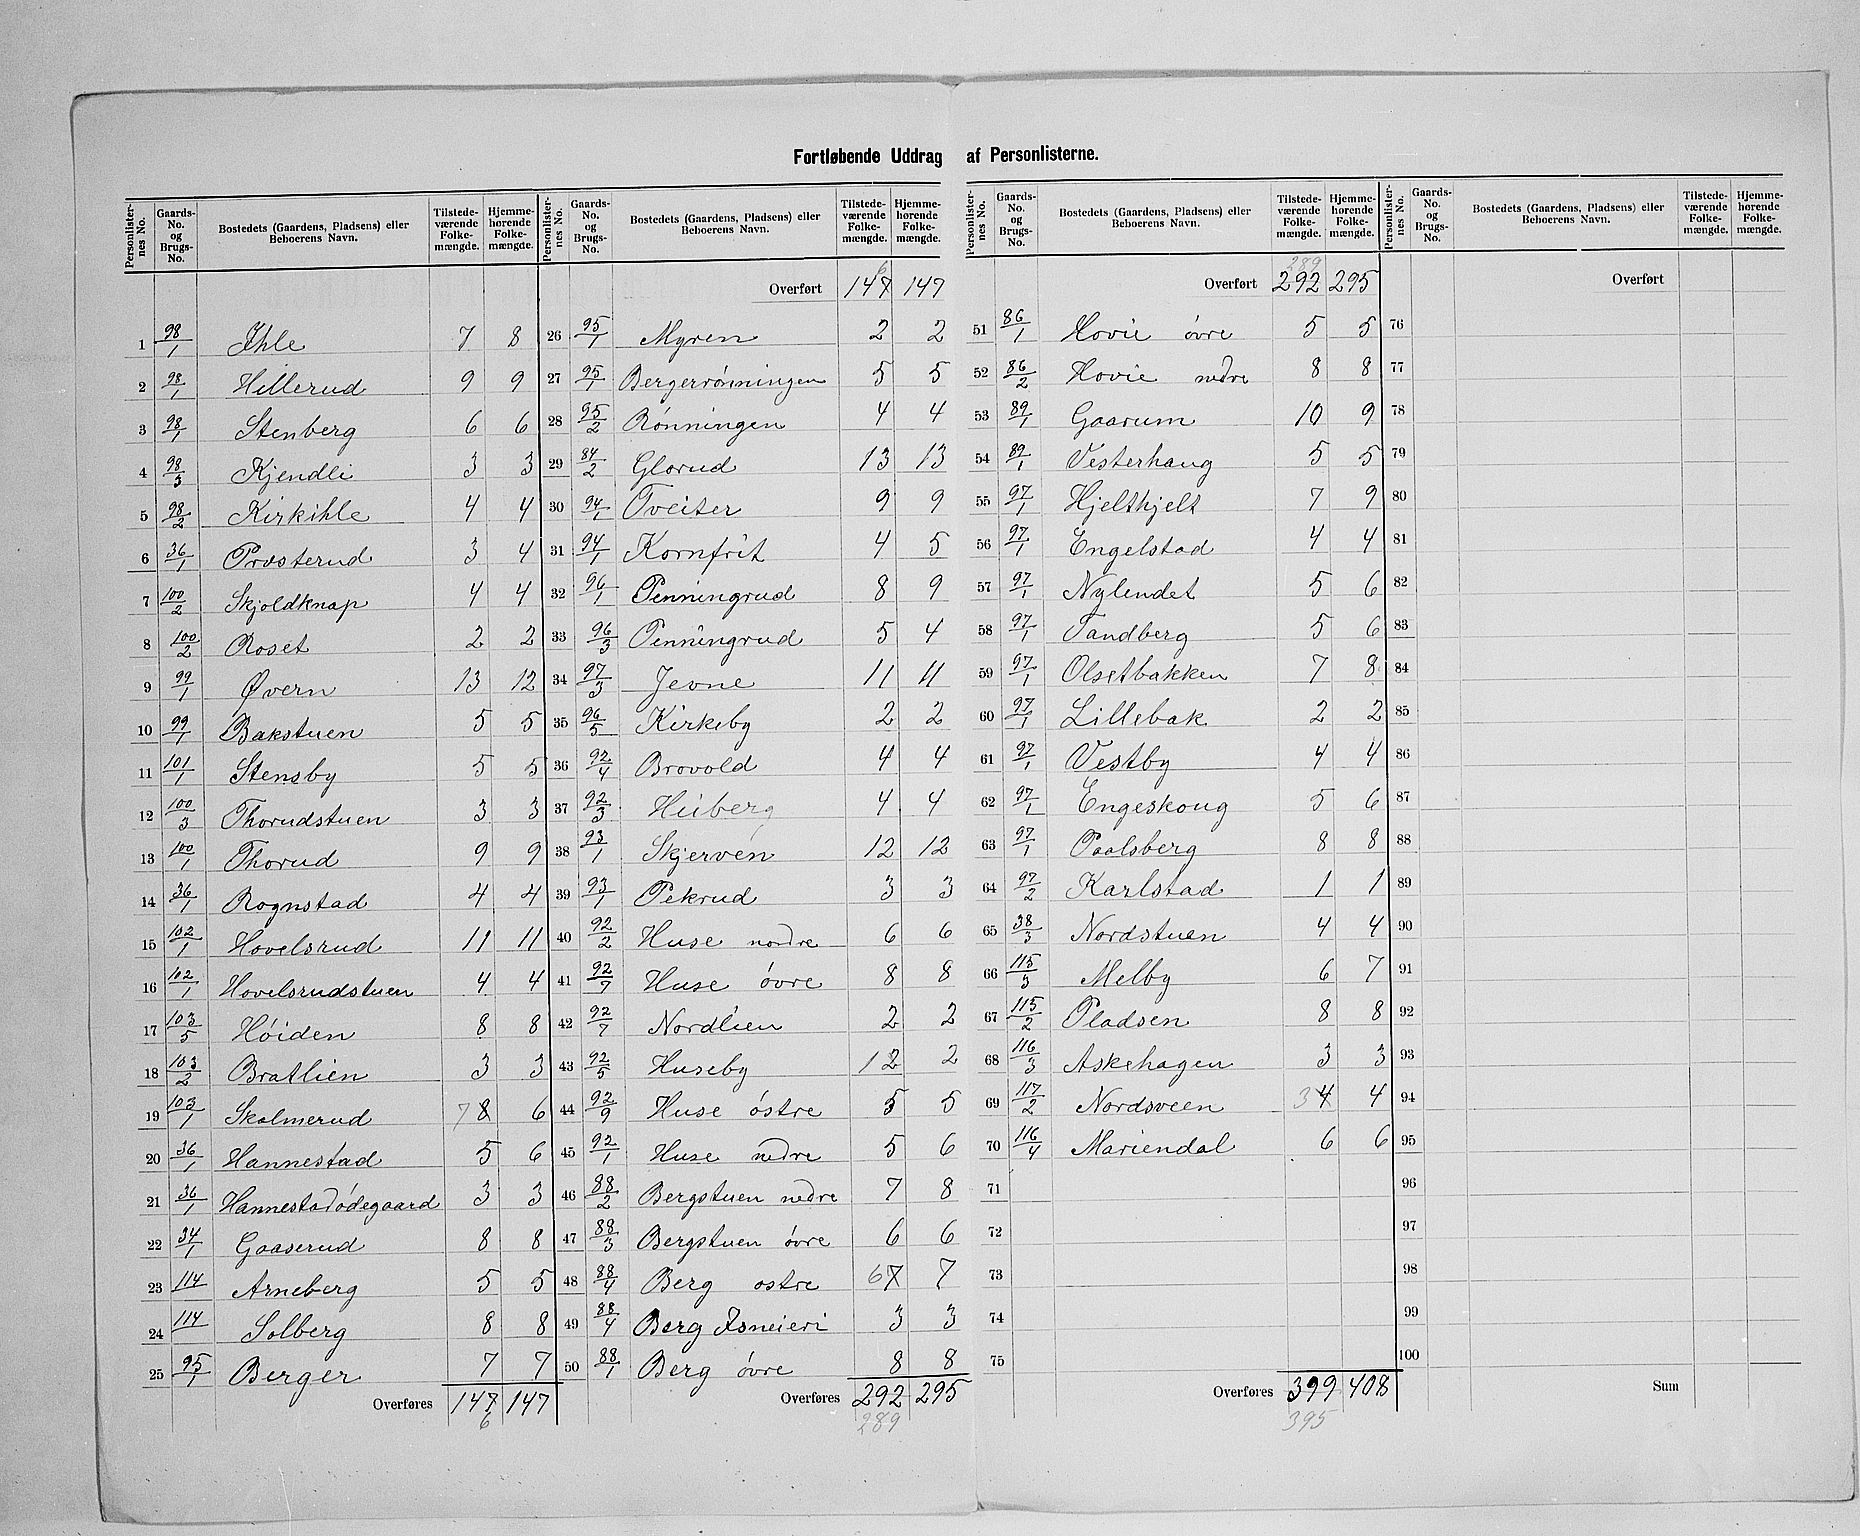 Fortløbende Uddrag af Personlisterne.
Personlisternes No. Gaards-No. og Brugs-No. Bostedets (Gaardens, Pladsens) eller Beboerens Navn. Tilstedeværende Folkemængde. Hjemmehørende Folkemængde.
1 98/1 Ihle 7 8
2 98/1 Hillerud 9 9
3 98/1 Stenberg 6 6
4 98/3 Kjendli 3 3
5 98/2 Kirkihle 4 4
6 36/1 Prosterud 3 4
7 100/2 Skjoldknap 4 4
8 100/2 Roset 2 2
9 99/1 Øvern 13 12
10 99/1 Bakstuen 5 5
11 101/1 Stensby 5 5
12 100/3 Thorudstuen 3 3
13 100/1 Thorud 9 9
14 36/1 Rognstad 4 4
15 102/1 Hovelsrud 11 11
16 102/1 Hovelsrudstuen 4 4
17 103/5 Høiden 8 8
18 103/2 Bratlien 3 3
19 103/1 Skolmerud 7 8 6
20 36/1 Hannestad 5 6
21 36/1 Hannestadødegaard 3 3
22 34/1 Gaaserud 8 8
23 114 Arneberg 5 5
24 114 Solberg 8 8
25 95/1 Berger 7 7
Overføres 147 147
6
Personlisternes No. Gaards-No. og Brugs-No. Bostedets (Gaardens, Pladsens) eller Beboerens Navn. Tilstedeværende Folkemængde. Hjemmehørende Folkemængde.
6
Overført 147 147
26 95/1 Myren 2 2
27 95/1 Bergerrønningen 5 5
28 95/2 Rønningen 4 4
29 84/2 Glorud 13 13
30 94/1 Tveiter 9 9
31 94/1 Kornfrit 4 5
32 96/1 Penningrud 8 9
33 96/3 Penningrud 5 4
34 97/3 Jevne 11 11
35 96/5 Kirkeby 2 2
36 92/4 Brovold 4 4
37 92/3 Huberg 4 4
38 93/1 Skjerven 12 12
39 93/1 Pekrud 3 3
40 92/2 Huse nordre 6 6
41 92/7 Huse övre 8 8
42 92/7 Nordlien 2 2
43 92/5 Huseby 12 2
44 92/9 Huse östre 5 5
45 92/1 Huse nedre 5 6
46 88/2 Bergstuen nedre 7 8
47 88/3 Bergstuen övre 6 6
48 88/4 Berg ostre 6 7 7
49 88/4 Berg 3 3
50 88/1 Berg övre 8 8
Overføres 292 295
289
Personlisternes No. Gaards-No. og Brugs-No. Bostedets (Gaardens, Pladsens) eller Beboerens Navn. Tilstedeværende Folkemængde. Hjemmehørende Folkemængde.
289
Overført 292 295
51 86/1 Hovie övre 5 5
52 86/2 Hovie nedre 8 8
53 89/1 Gaarum 10 9
54 89/1 Vesterhaug 5 5
55 97/1 Hjelthjelt 7 9
56 97/1 Engelstad 4 4
57 97/1 Nylendet 5 6
58 97/1 Tandberg 5 6
59 97/1 Olsetbakken 7 8
60 97/1 Lillebak 2 2
61 97/1 Vestby 4 4
62 97/1 Engeskoug 5 6
63 97/1 Paalsberg 8 8
64 97/2 Karlstad 1 1
65 38/3 Nordstuen 4 4
66 115/3 Melby 6 7
67 115/2 Pladsen 8 8
68 116/3 Askehagen 3 3
69 117/2 Nordsveen 3 4 4
70 116/4 Mariendal 6 6
71
72
73
74
75
Overføres 399 408
395
Personlisternes No. Gaards-No. og Brugs-No. Bostedets (Gaardens, Pladsens) eller Beboerens Navn. Tilstedeværende Folkemængde. Hjemmehørende Folkemængde.
Overført
76
77
78
79
80
81
82
83
84
85
86
87
88
89
90
91
92
93
94
95
96
97
98
99
100
Sum